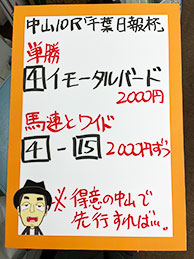 中山10R「千葉日報杯」
単勝
4 イモータルバード
2000円
馬連とワイド
4 - 15 2000円ずつ
※得意の中山で
先行すれば…。